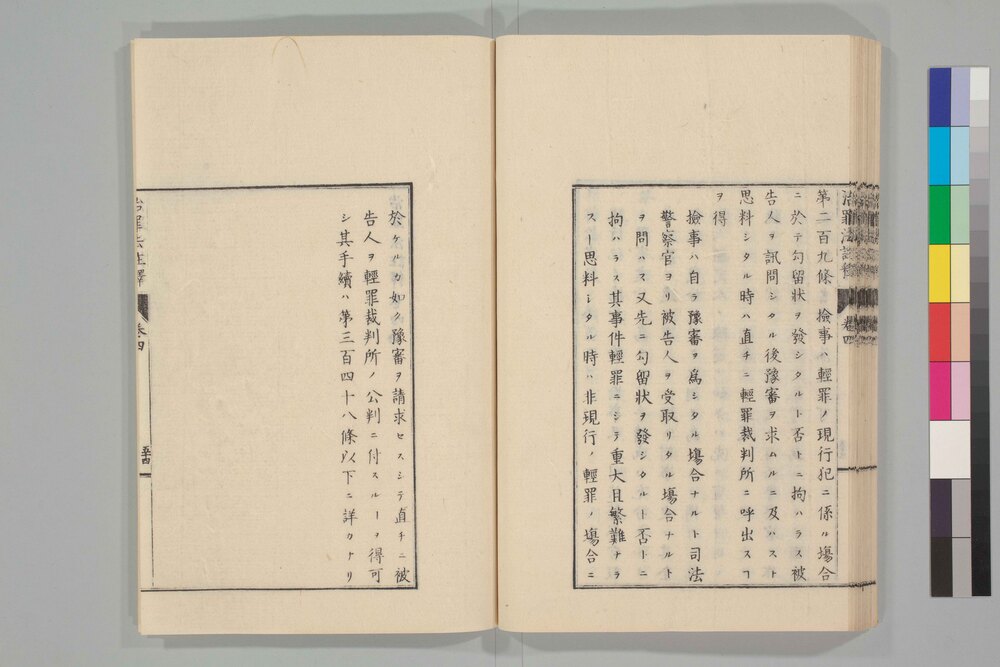 第二百九條 檢事ハ輕罪ノ現行犯ニ係ル塲合
ニ於テ勾留狀ヲ發シタルト否トニ拘ハラス被
告人ヲ訊問シタル後豫審ヲ求ムルニ及ハスト
思料シタル時ハ直チニ輕罪裁判所ニ呼出スヿ
ヲ得
檢事ハ自ラ豫審ヲ爲シタル塲合ナルト司法
警察官ヨリ被告人ヲ受取リタル塲合ナルト
ヲ問ハス又先ニ勾留狀ヲ發シタルト否トニ
拘ハラス其事件輕罪ニシテ重大且繁難ナラ
スト思料シタル時ハ非現行ノ輕罪ノ塲合ニ
於ケルカ如ク豫審ヲ請求セスシテ直チニ被
告人ヲ輕罪裁判所ノ公判ニ付スルヿヲ得可
シ其手續ハ第三百四十八條以下ニ詳カナリ
治罪法註釋
卷四
五十四